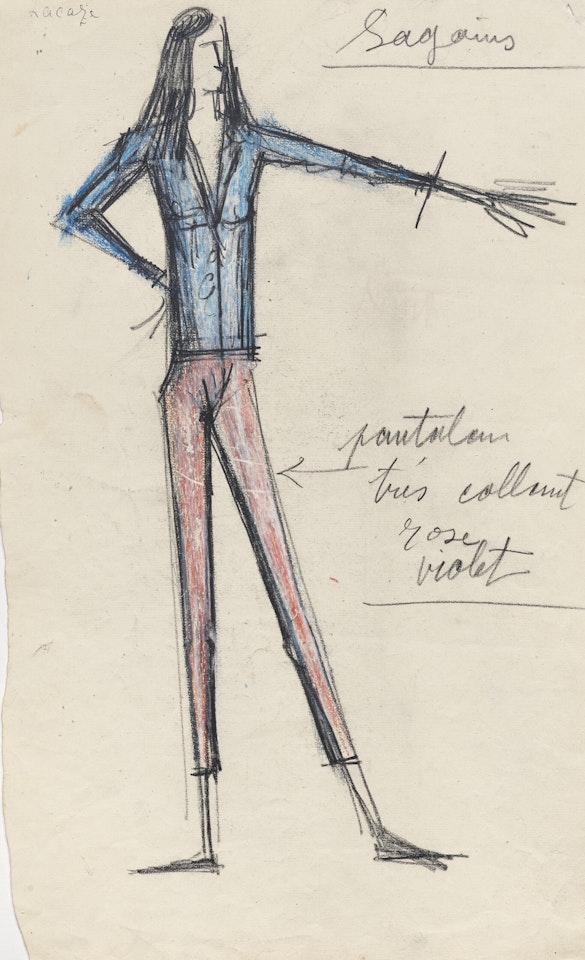 Lacaze
Sagains
pantalon
très collant
rose
violet